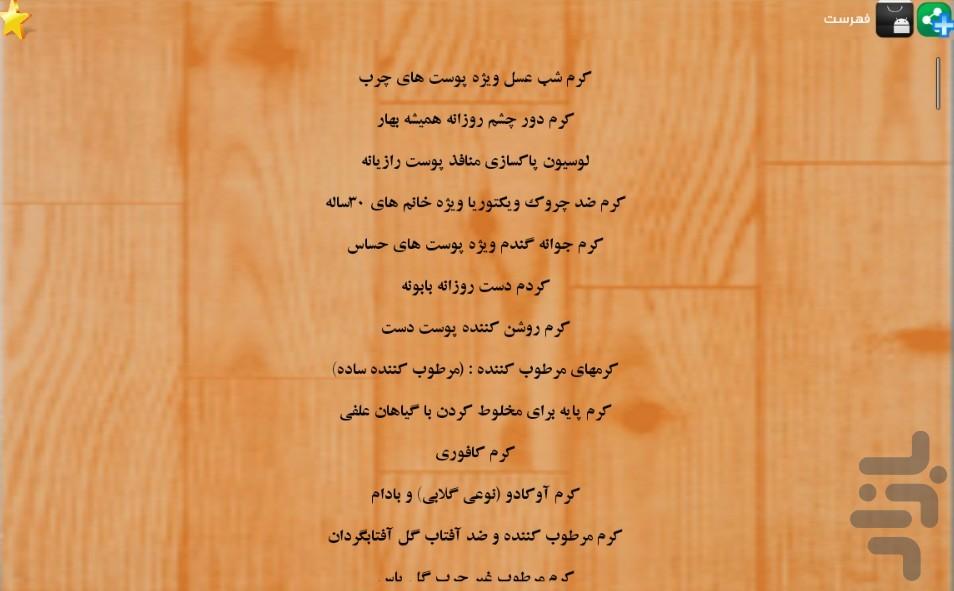 فهرست
کرم شب عسل ویژه پوست های چرب
کرم دور چشم روزانه همیشه بهار
لوسیون پاکسازی منافذ پوست رازیانه
کرم ضد چروک ویکتوریا ویژه خانم های ۳۰ساله
کرم جوانه گندم ویژه پوست های حساس
کردم دست روزانه بابونه
کرم روشن کننده پوست دست
کرمهای مرطوب کننده : (مرطوب کننده ساده)
کرم پایه برای مخلوط کردن با گیاهان علفی
کرم کافوری
کرم آوکادو (نوعی گلابی) و بادام
کرم مرطوب کننده و ضد آفتاب گل آفتابگردان
کرم مرطوب غیر چرب گل یاس
بازار